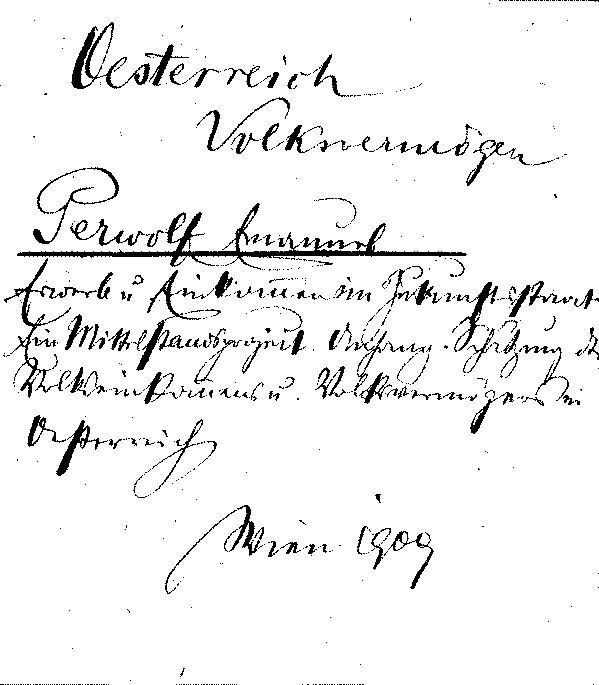 Oesterreich
Volksvermögen
Perwolf Emanuel
Erwerb u Einkommen im Zukunftsstaat
Ein Mittelstandsproject. Anhang. Schätzung d
Volkseinkommens u. Volksvermögens in
Oesterreich
Wien 1909